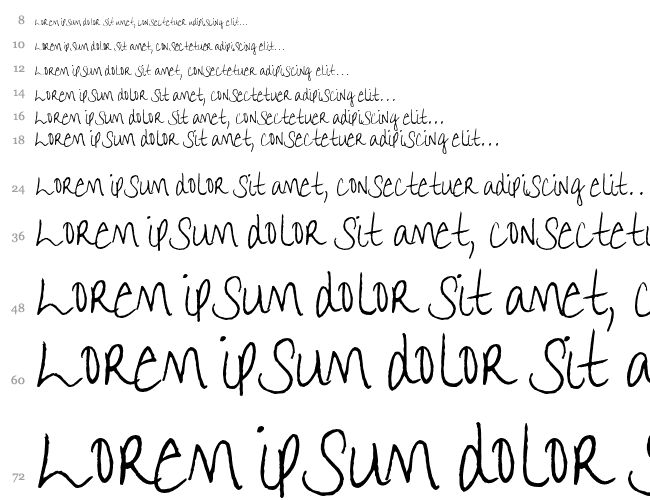 8 Lorem ipsum dolor sit amet, consectetuer adipiscing elit...
10 Lorem ipsum dolor sit amet, consectetuer adipiscing elit...
12 Lorem ipsum dolor sit amet, consectetuer adipiscing elit...
14 Lorem ipsum dolor sit amet, consectetuer adipiscing elit...
16 Lorem ipsum dolor sit amet, consectetuer adipiscing elit...
18 Lorem ipsum dolor sit amet, consectetuer adipiscing elit...
24 Lorem ipsum dolor sit amet, consectetuer adipiscing elit..
36 Lorem ipsum dolor sit amet, consectetu
48 Lorem ipsum dolor sit amet, c
60 Lorem ipsum dolor sit a
72 Lorem ipsum dolor s